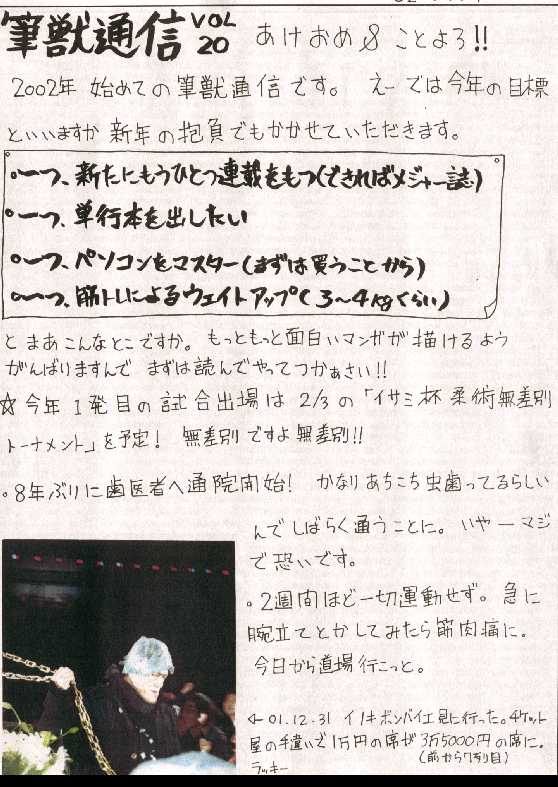 筆獣通信 VOL 20 あけおめ & ことよろ!!
2002年 始めての筆獣通信です。 えーでは今年の目標
といいますか 新年の抱負でもかかせていただきます。
。一つ、新たにもうひとつ連載をもつ(できればメジャー誌)
。一つ、単行本を出したい
。一つ、パソコンをマスター(まずは買うことから)
。一つ、筋トレによるウェイトアップ(3〜4kgくらい)
とまあこんなとこですか。もっともっと面白いマンガが描けるよう
がんばりますんで まずは読んでやってつかぁさい!!
☆今年1発目の試合出場は 2/3の「イサミ杯 柔術無差別
トーナメント」を予定! 無差別ですよ無差別!!
。8年ぶりに歯医者へ通院開始! かなりあちこち虫歯ってるらしい
んでしばらく通うことに。いやーマジ
で恐いです。
。2週間ほど一切運動せず。急に
腕立てとかしてみたら筋肉痛に。
今日から道場行こっと。
← 01.12.31 イノキボンバイエ見に行った。チケット
屋の手違いで1万円の席が3万5000円の席に。
(前から7列り目)
ラッキー